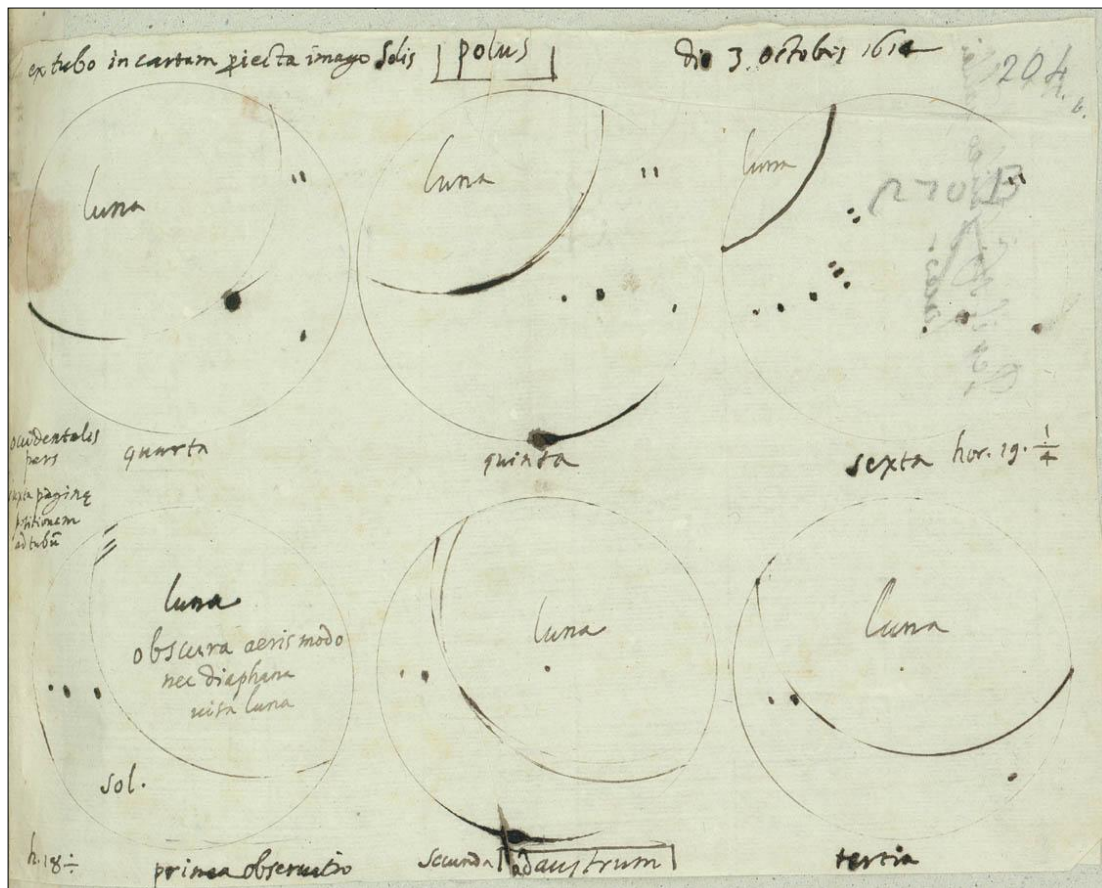 ex tubo in cartam piecta imago Solis polus die 3. octobris 1614
204
b.
luna luna luna
occidentalis
pars
iuxta paginę
positionem
ad tubū
quarta quinta sexta hor. 19. 1/4
luna
obscura aeris modo
nec diaphana
visa luna
sol.
luna
luna
h. 18 ÷ prima observatio secunda ad austrum tertia